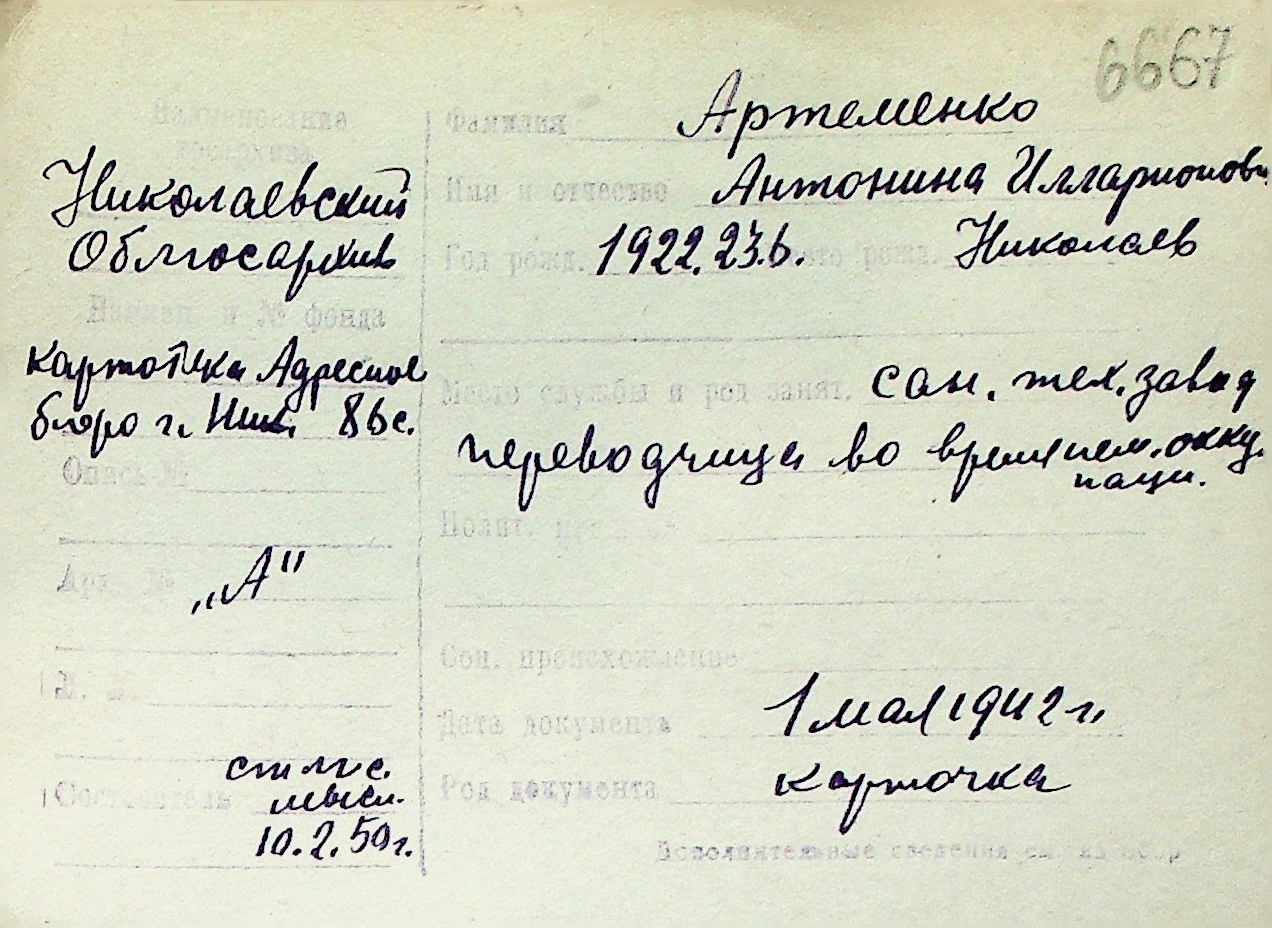 6667
Наименование
госархива
Николаевский
Облгосархив
Наимен. и № фонда
картотека Адресное
бюро г. Ник. 86с.
Опись №
Арх. №
„А"
Составитель
10.2.50г.
Фамилия Артеменко
Имя и отчество Антонина Илларионовн
Год рожд. 1922.23.6. Место рожд. Николаев
Место службы и род занят. сан. тех. завод
переводчица во время нем. окку
паци.
Полит.
Соц. происхождение
Дата документа 1 мая 1942 г.
Род документа карточка
Дополнительные сведения см. на обор